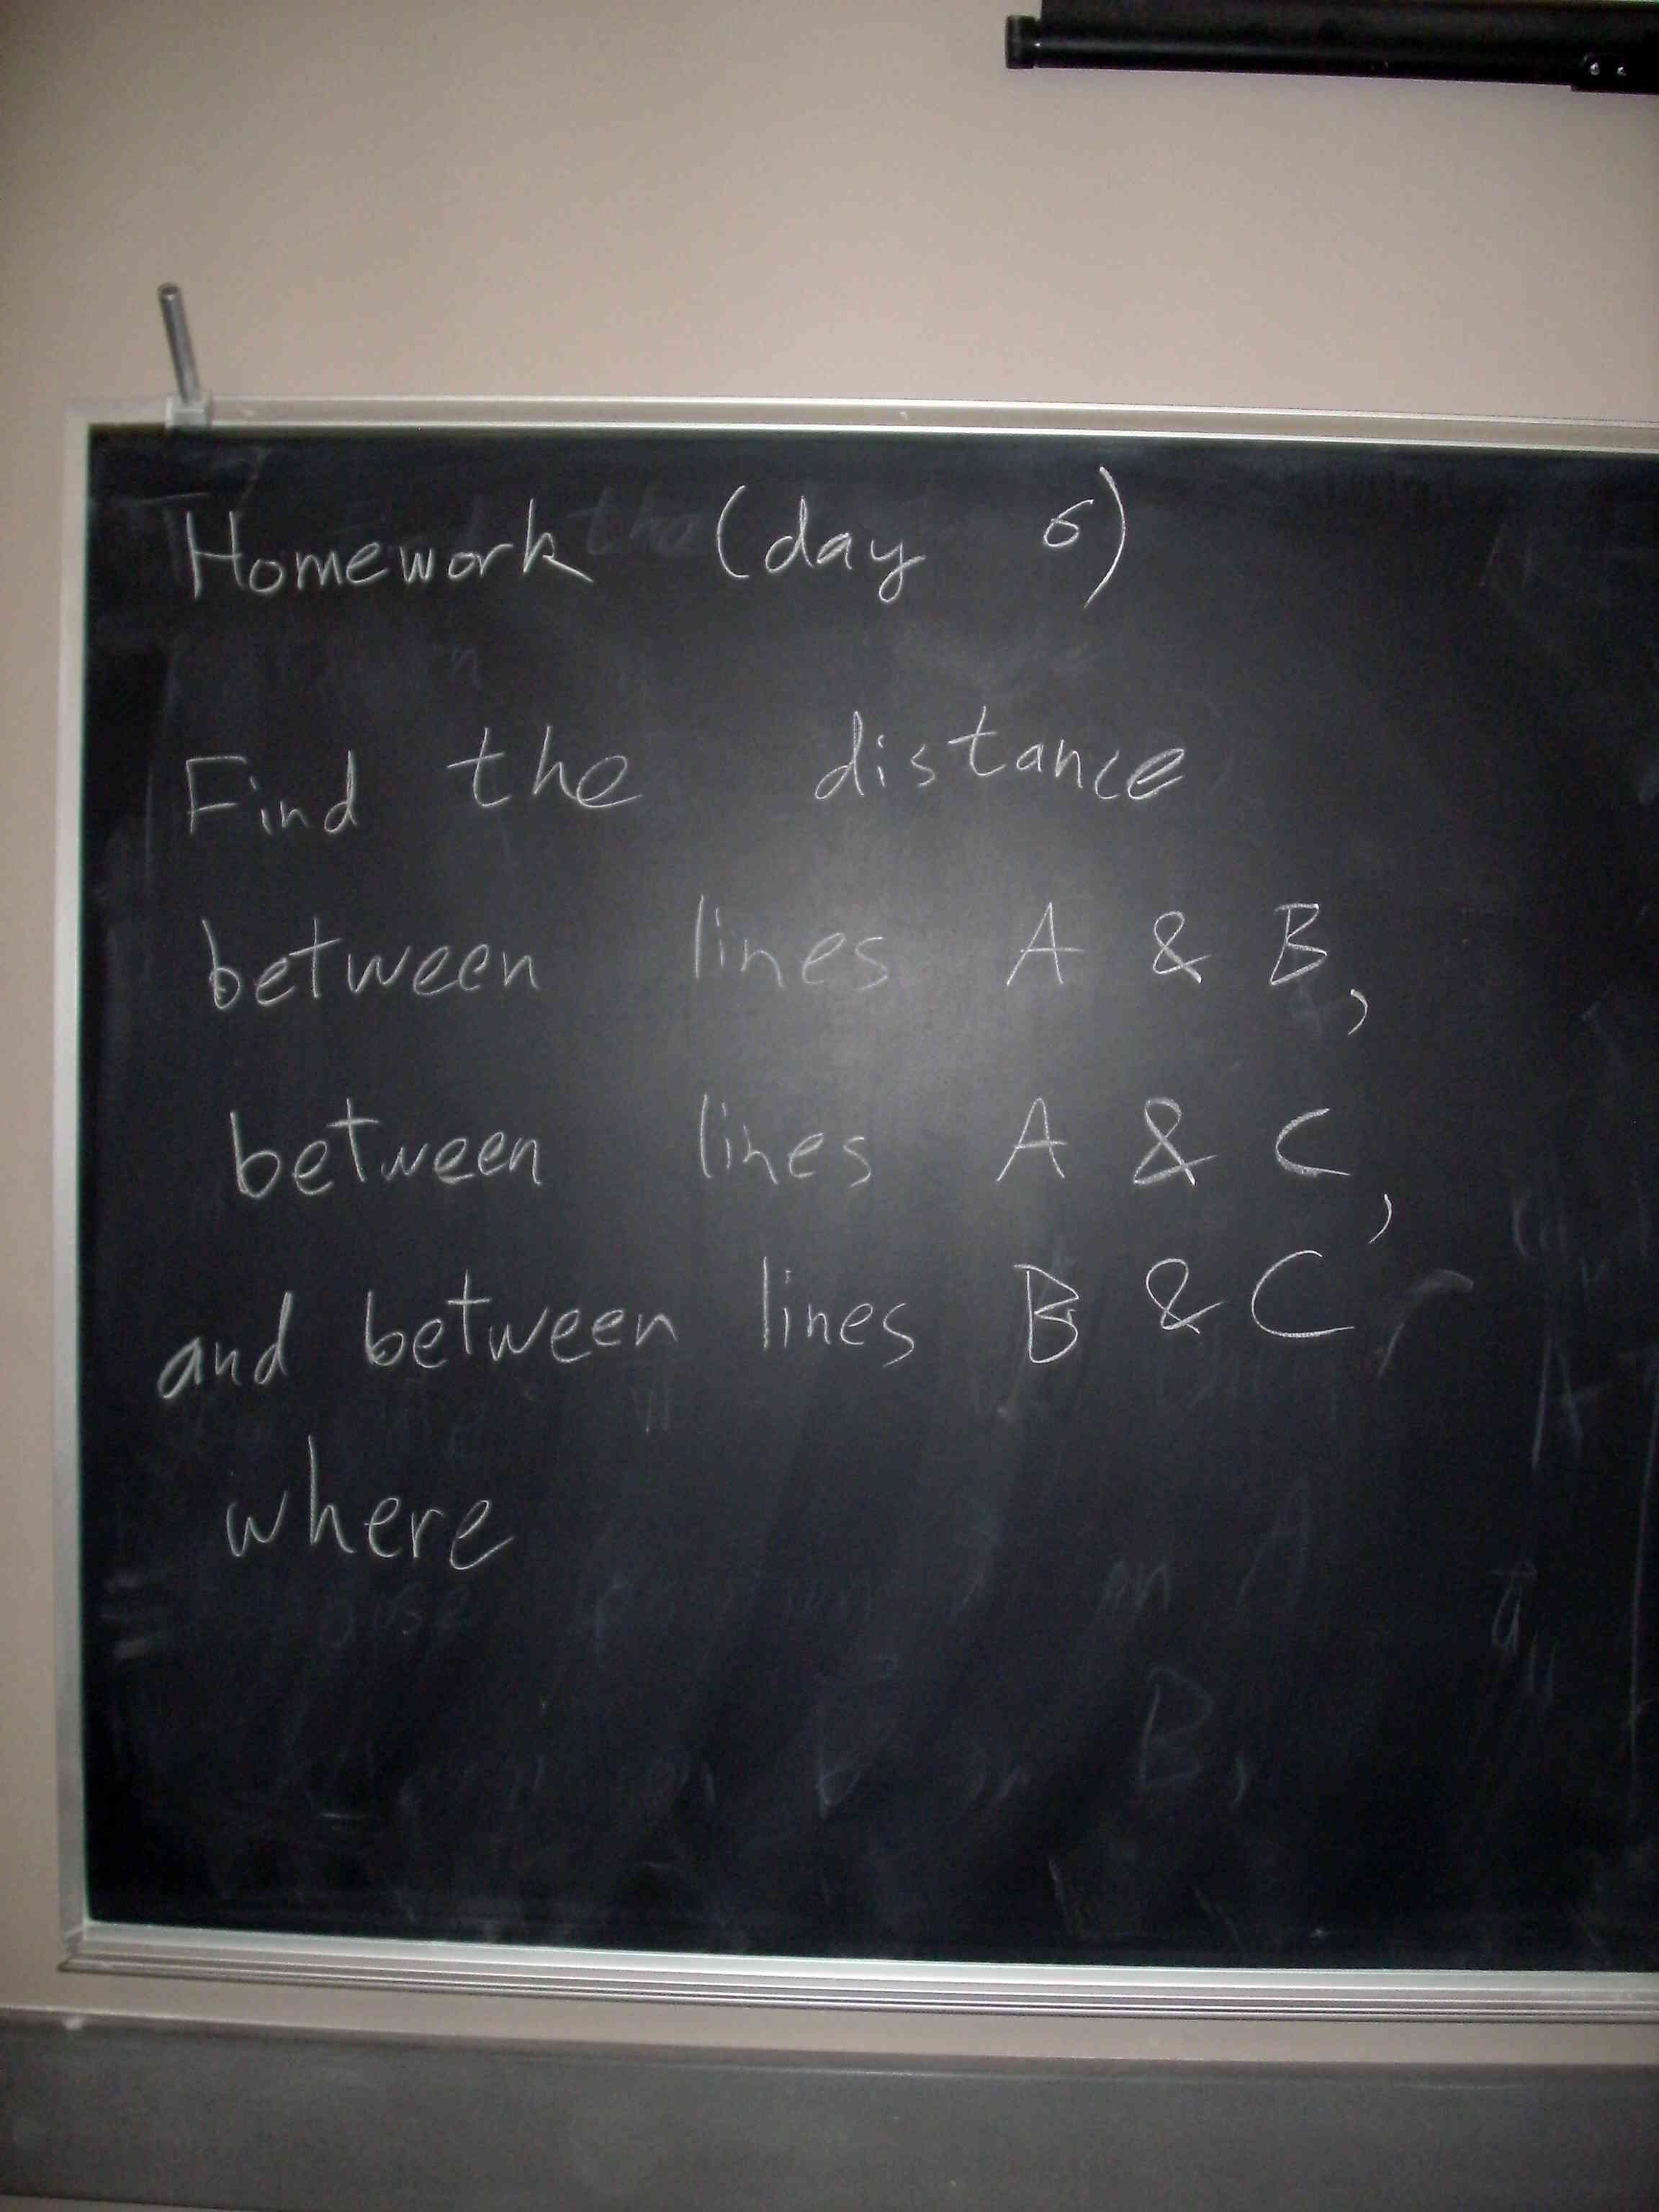 Homework (day 6)
Find the distance
between lines A & B,
between lines A & C,
and between lines B & C
where